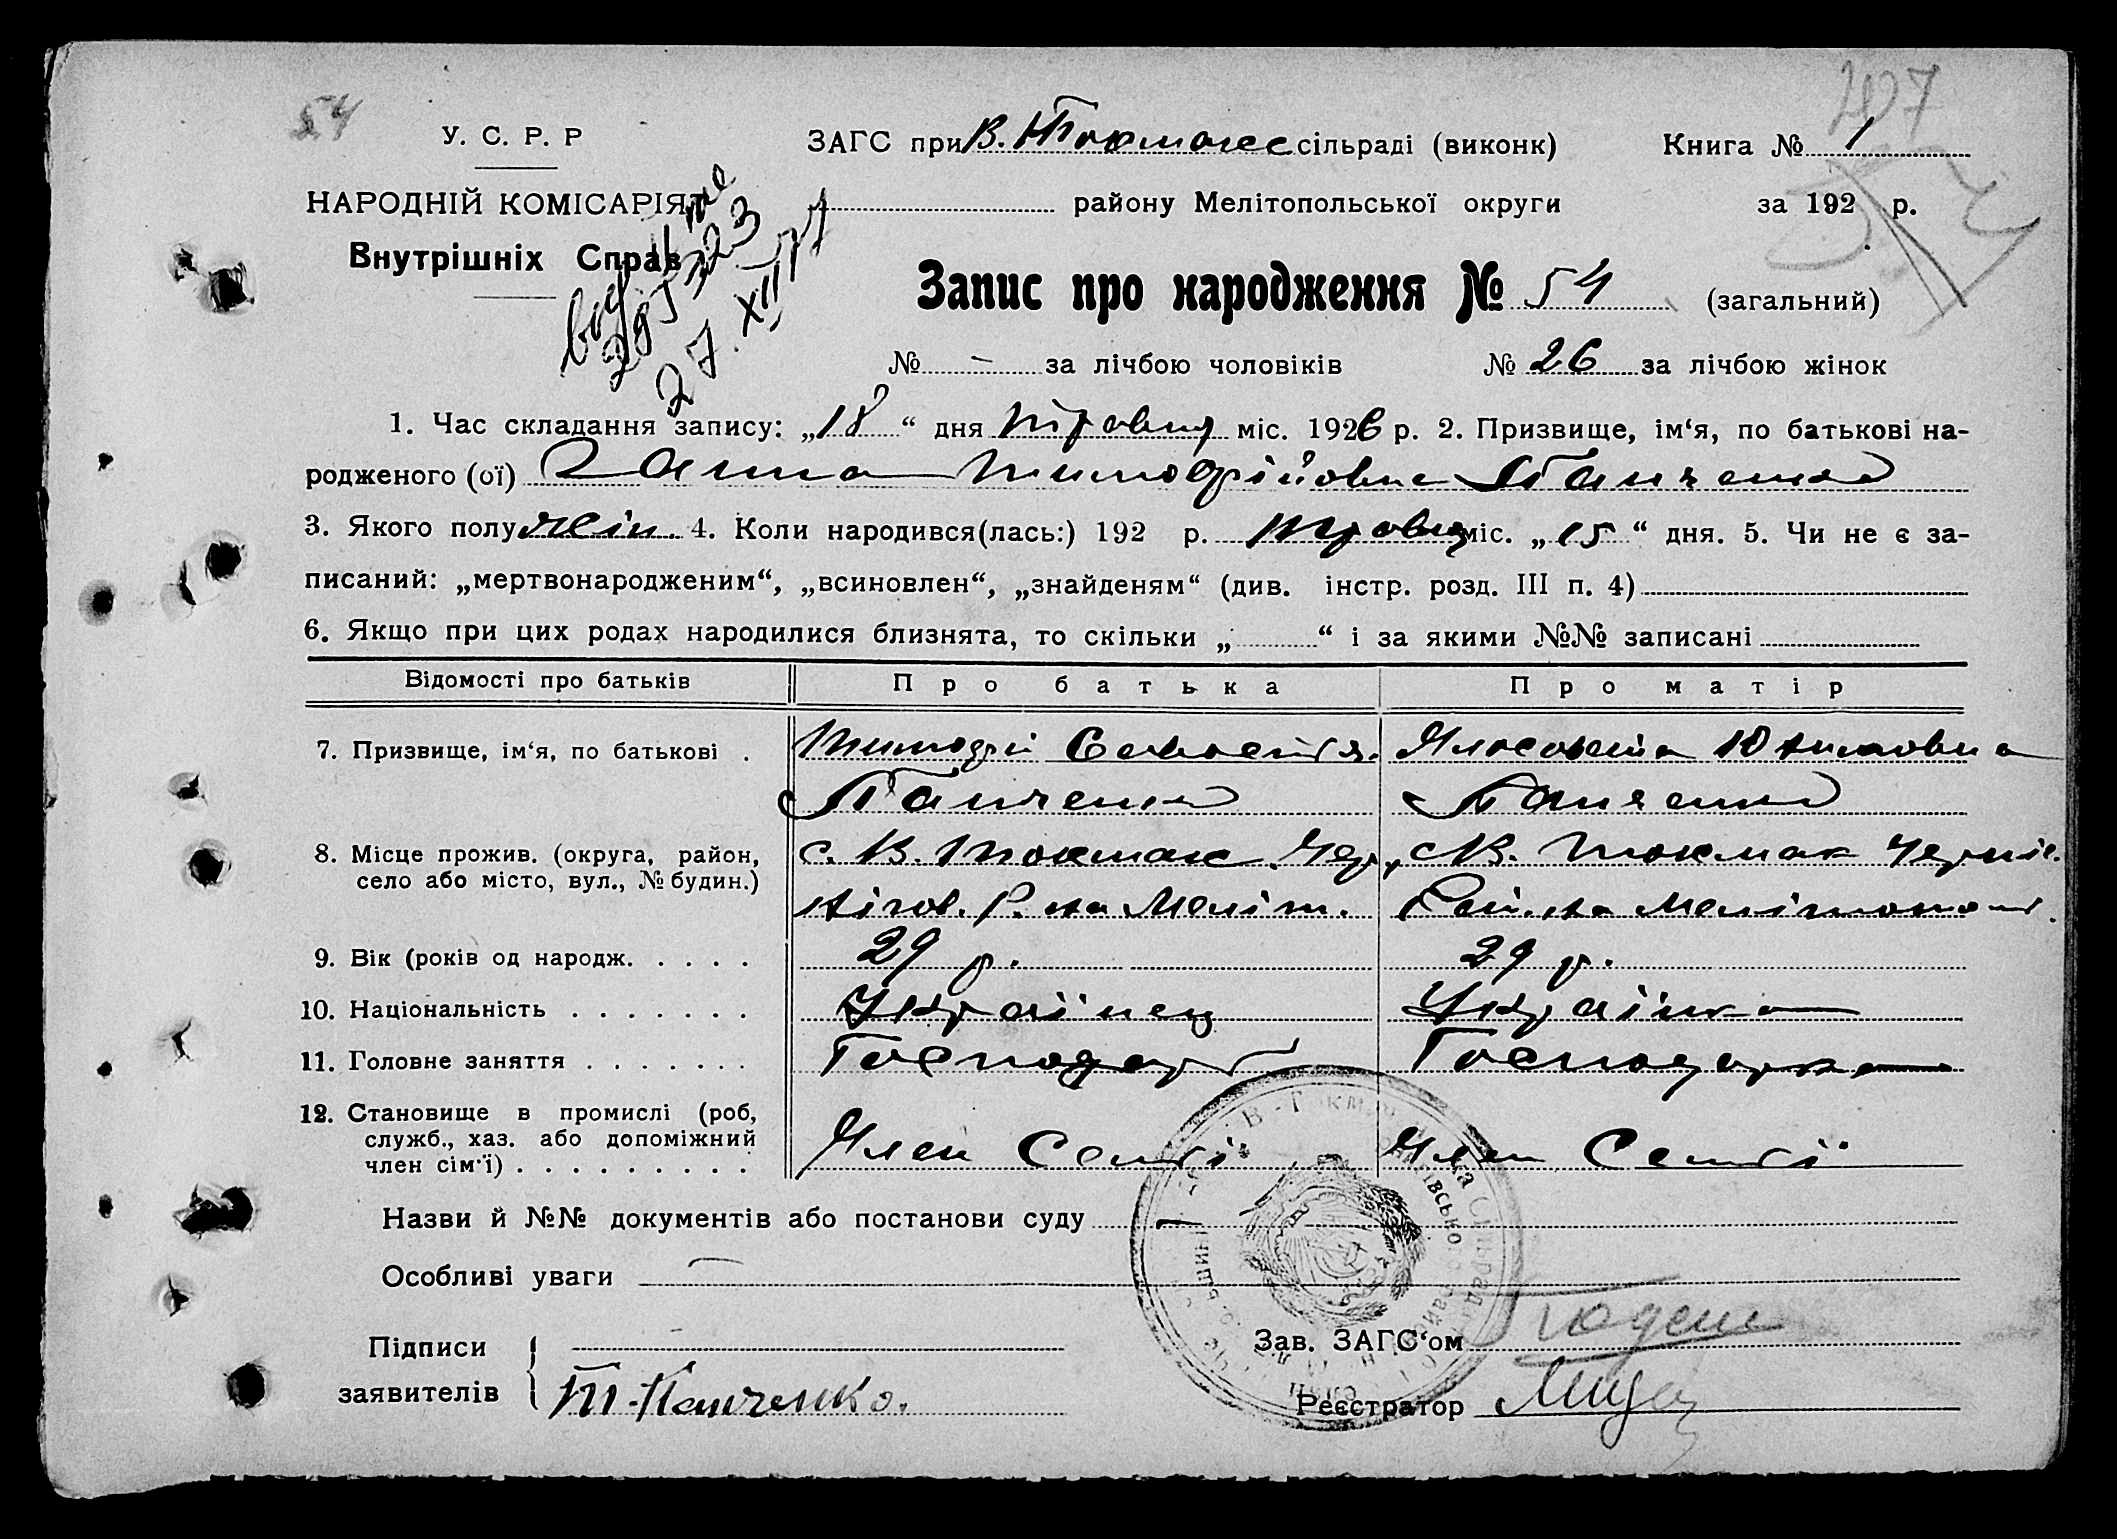 54
407
У. С. Р. Р
ЗАГС при В. Токмакс сільраді (виконк)
Книга № 1
НАРОДНІЙ КОМІСАРІЯТ
району Мелітопольської округи
за 192 р.
Внутрішніх Справ
27.XII
Запис про народження № 54 (загальний)
54
№ - за лічбою чоловіків № 26 за лічбою жінок
1. Час складання запису: „18“ дня травня міс. 1926 р. 2. Призвище, ім‘я, по батькові на-
родженого (ої) Ганна Тимофійовна Панченко
3. Якого полу жін. 4. Коли народився(лась:) 192 р. травня міс. „15“ дня. 5. Чи не є за-
писаний: „мертвонародженим“, „всиновлен“, „знайденям“ (див. інстр. розд. III п. 4)
6. Якщо при цих родах народилися близнята, то скільки „ “ і за якими №№ записані
Відомості про батьків Про батька Про матір
7. Призвище, ім‘я, по батькові . Тимофій
Панченко Панченко
8. Місце прожив. (округа, район, с. В. Токмак Чер с. В. Токмак Черніг.
село або місто, вул., № будин.) нігов. Р. на Меліт. Рай. на Мелітопол
9. Вік (років од народж. . . . . 29 р. 29 р.
10. Національність . . . . . . . Українец Українка
11. Головне заняття . . . . . . . Господар Господарка
12. Становище в промислі (роб,
служб., хаз. або допоміжний Член Семґї Член Семґї
член сім‘ї) . . . . . . . . .
Назви й №№ документів або постанови суду —
Особливі уваги —
Підписи
заявителів
Т. Панченко.
Зав. ЗАГС‘ом
Реєстратор